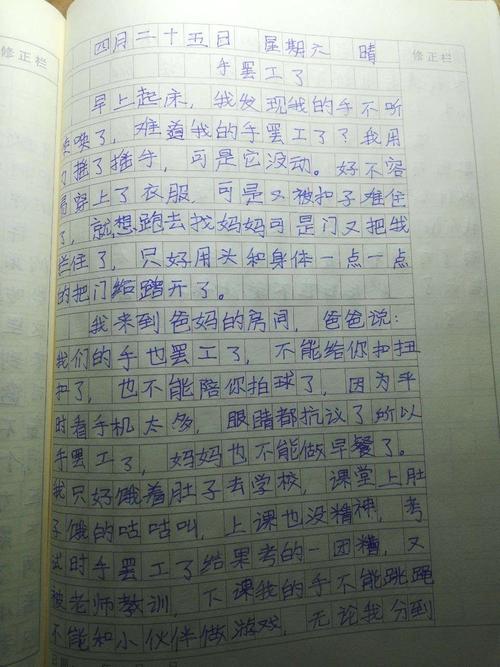 修正栏
修正栏
四月二十五日 星期六 晴
手罢工了
早上起床，我发现我的手不听
使唤了，难道我的手罢工了？我用
力摇了摇手，可是它没动。好不容
易穿上了衣服，可是又被扣子难住
了，就想跑去找妈妈可是门又把我
拦住了，只好用头和身体一点一点
的把门给蹭开了。
我来到爸妈的房间，爸爸说：
我们的手也罢工了，不能给你扣扭
扣了，也不能陪你拍球了，因为平
时看手机太多，眼睛都抗议了所以
手罢工了，妈妈也不能做早餐了。
我只好饿着肚子去学校，课堂上肚
子饿的咕咕叫，上课也没精神，考
试时手罢工了结果考的一团糟，又
被老师教训，下课我的手不能跳绳
不能和小伙伴做游戏，无论我分到